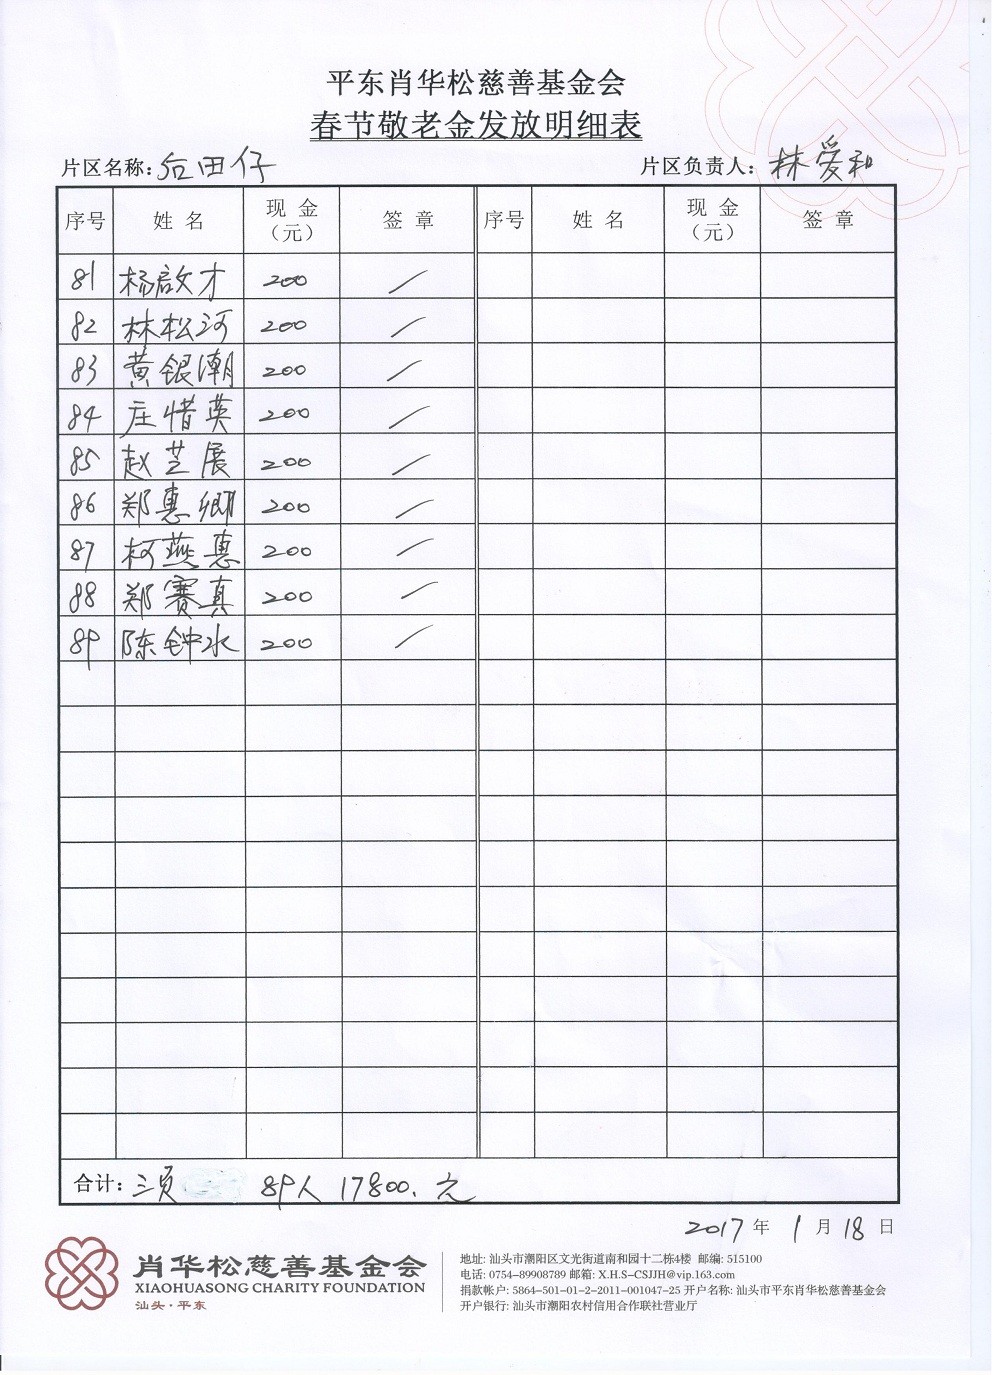 平东肖华松慈善基金会
春节敬老金发放明细表
片区名称:后田仔 片区负责人:林爱和
序号 姓名 现金（元） 签章 序号 姓名 现金（元） 签章
81 杨啟才 200 /
82 林松河 200 /
83 黄银潮 200 /
84 庄惜英 200 /
85 赵芝展 200 /
86 郑惠卿 200 /
87 柯燕惠 200 /
88 郑赛真 200 /
89 陈钟水 200 /
合计:三页 89人 17800.元
2017年1月18日
肖华松慈善基金会
XIAOHUASONG CHARITY FOUNDATION
汕头·平东
地址: 汕头市潮阳区文光街道南和园十二栋4楼 邮编: 515100
电话: 0754-89908789 邮箱: X.H.S-CSJJH@vip.163.com
捐款帐户: 5864-501-01-2-2011-001047-25 开户名称: 汕头市平东肖华松慈善基金会
开户银行: 汕头市潮阳农村信用合作联社营业厅